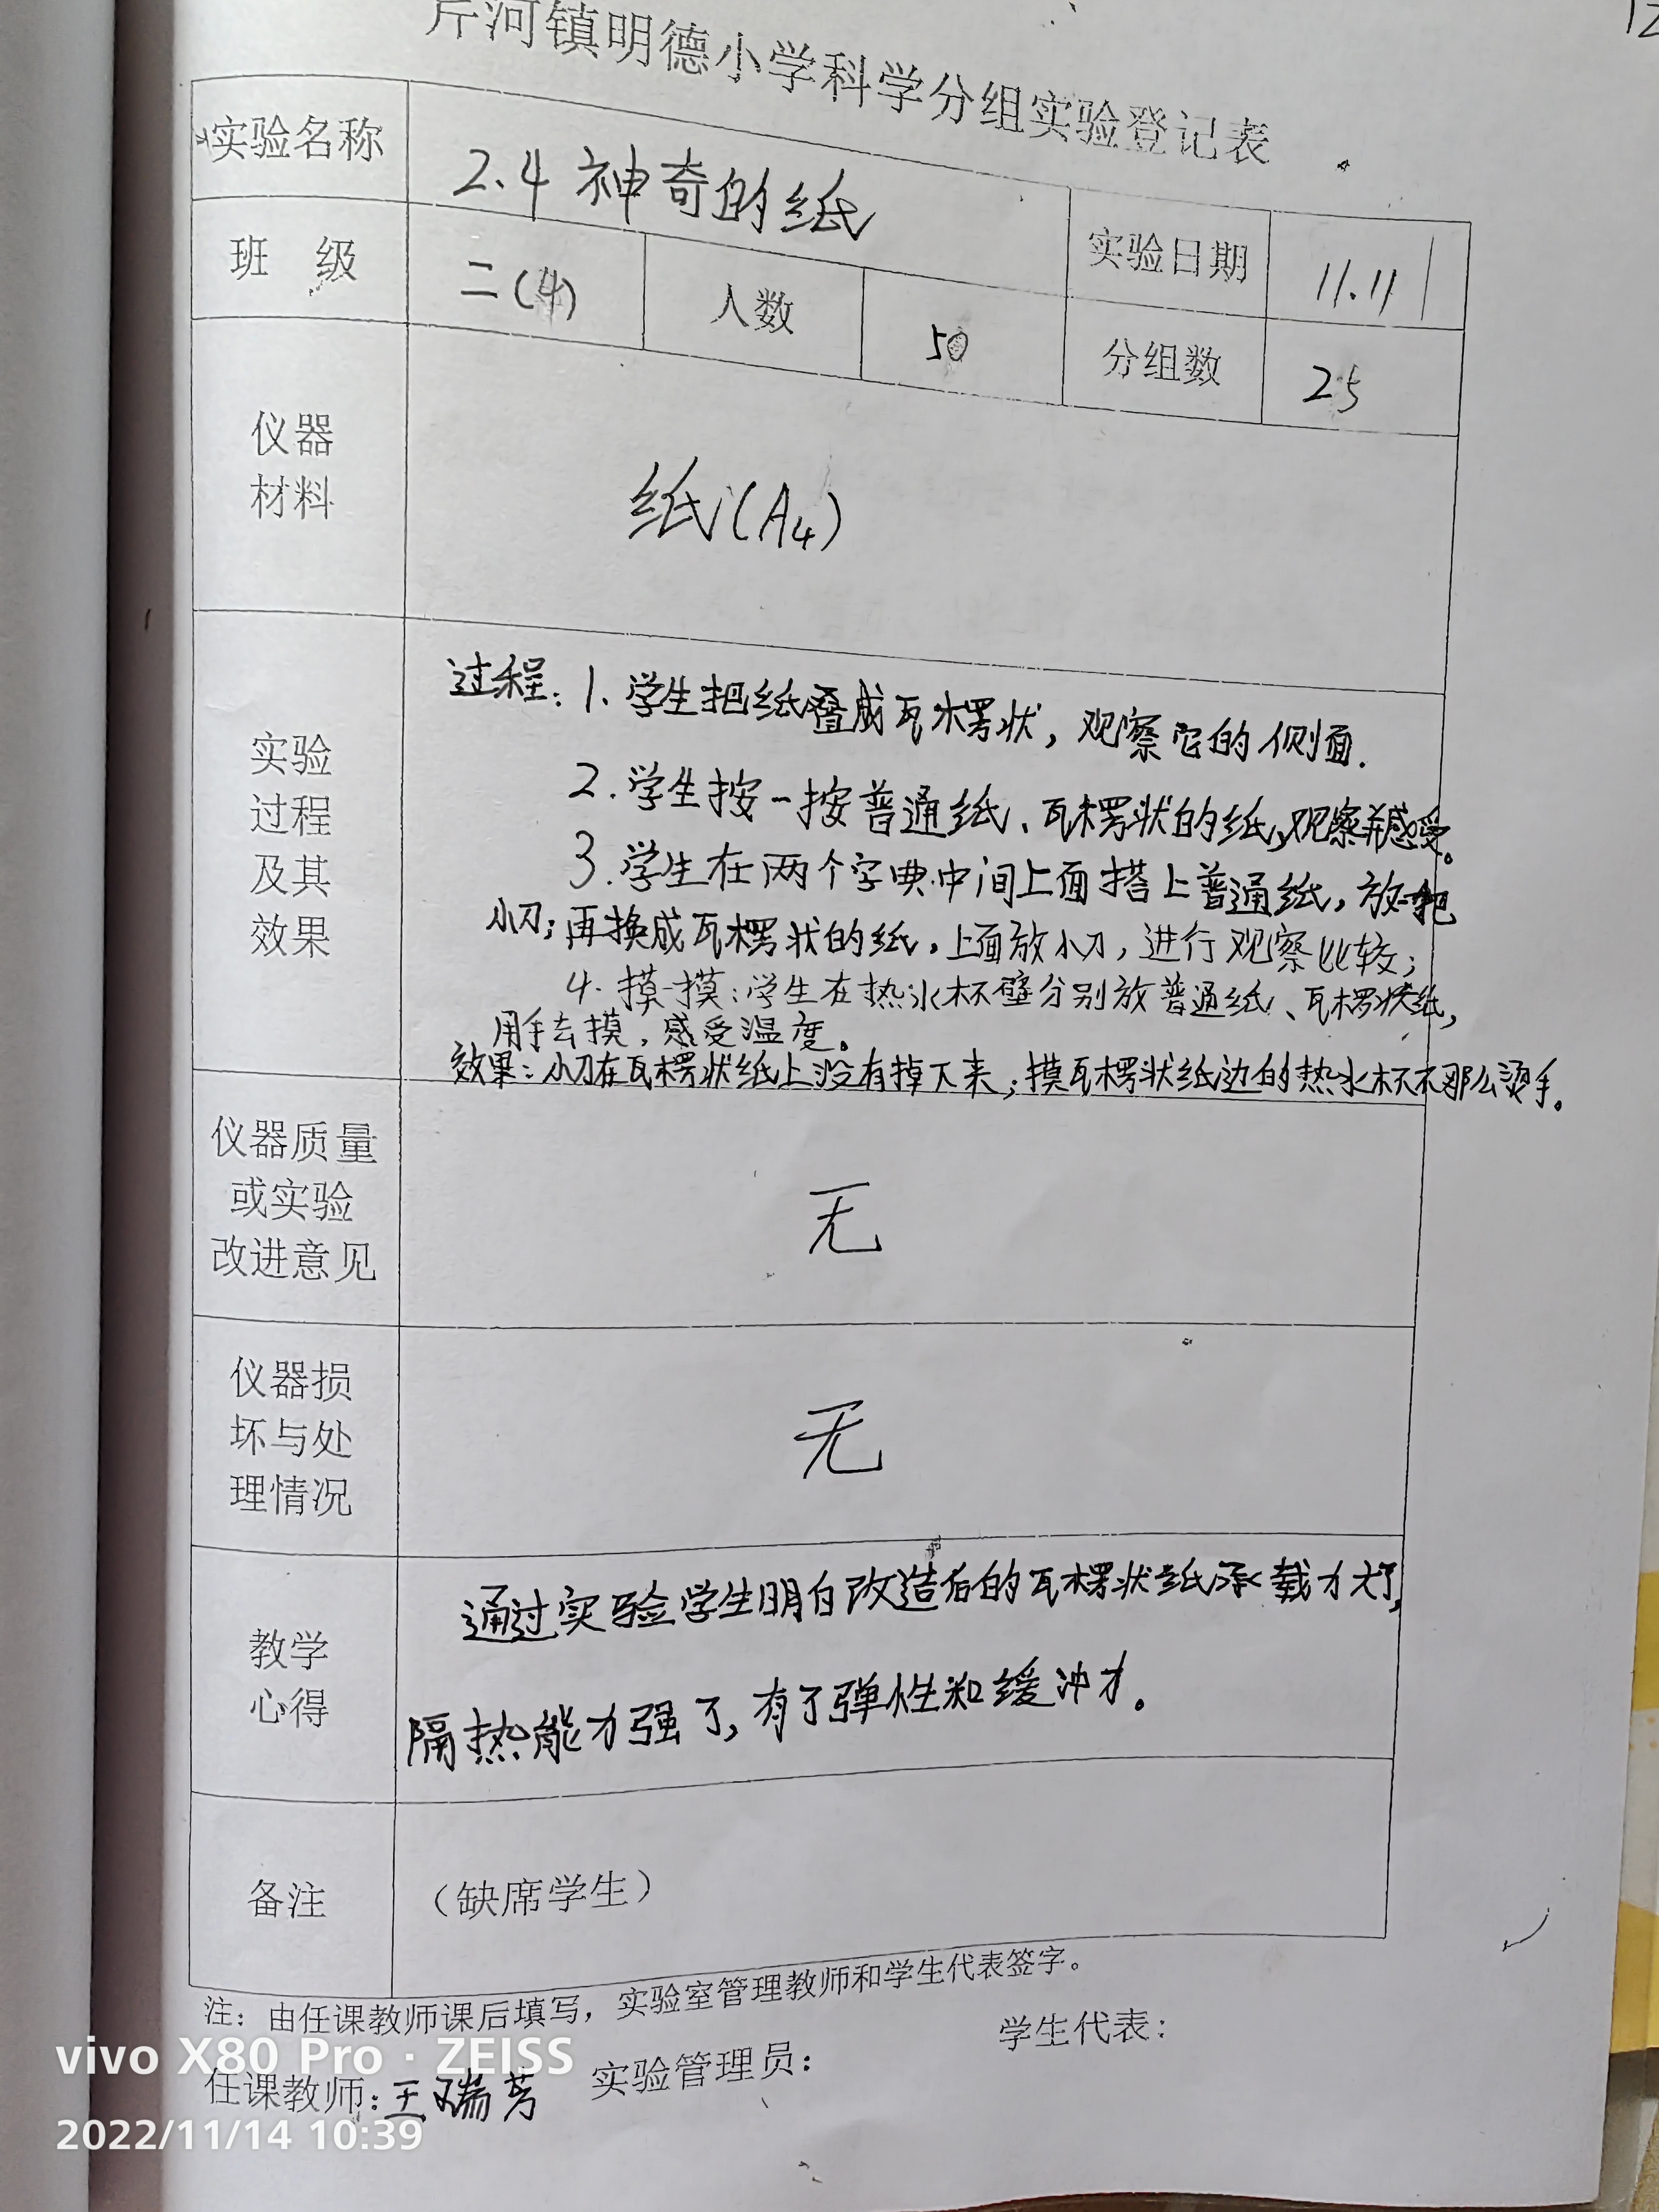 芹河镇明德小学科学分组实验登记表
实验名称 2.4 神奇的纸 实验日期 11.11
班 级 二(4) 人数 50 分组数 25
仪器
材料
纸(A4)
实验
过程
及其
效果
过程:1.学生把纸叠成瓦楞状,观察它的侧面.
2.学生按一按普通纸、瓦楞状的纸,观察并感受。
3.学生在两个字典中间上面搭上普通纸,放一把
小刀;再换成瓦楞状的纸,上面放小刀,进行观察比较;
4.摸一摸:学生在热水杯壁分别放普通纸、瓦楞状纸,
用手去摸,感受温度。
效果:小刀在瓦楞状纸上没有掉下来;摸瓦楞状纸边的热水杯不那么烫手。
仪器质量
或实验
改进意见
无
仪器损
坏与处
理情况
无
教学
心得
通过实验学生明白改造后的瓦楞状纸承载力大了,
隔热能力强了,有了弹性和缓冲力。
备注
(缺席学生)
注:由任课教师课后填写,实验室管理教师和学生代表签字。
任课教师:王瑞芳 实验管理员: 学生代表:
vivo X80 Pro · ZEISS
2022/11/14 10:39